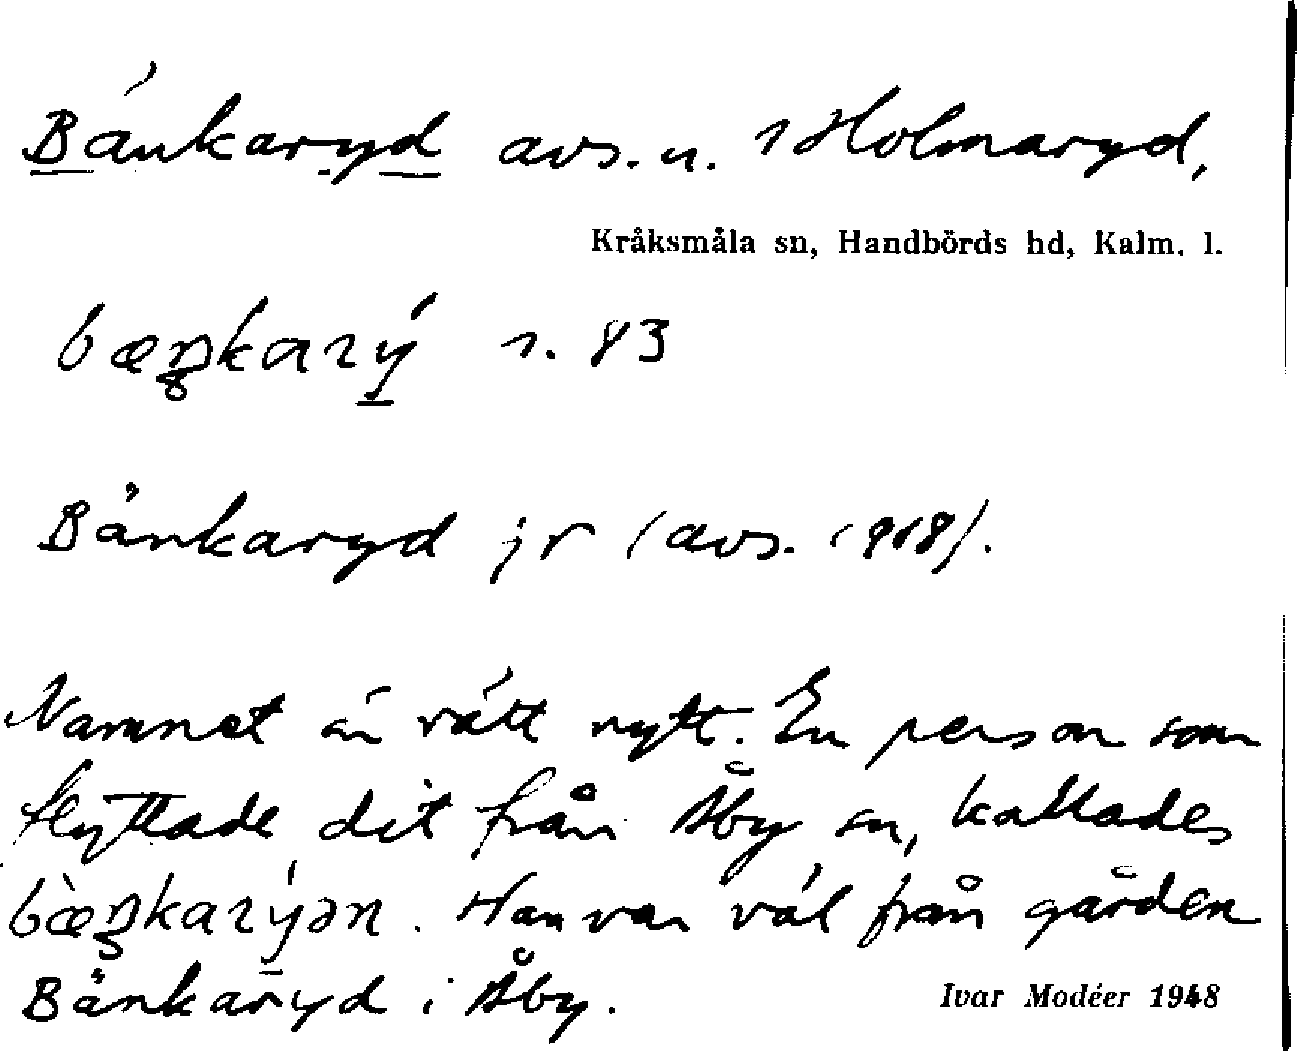 Bänkaryd avs. u. Holmaryd,
Kråksmåla sn, Handbörds hd, Kalm. l.
s. 83
Bänkaryd jr (avs. 1918).
Namnet är rätt nytt. En person som
flyttade dit från Åby sn, kallades
Han var väl från gården
Bänkaryd i Åby.
Ivar Modéer 1948